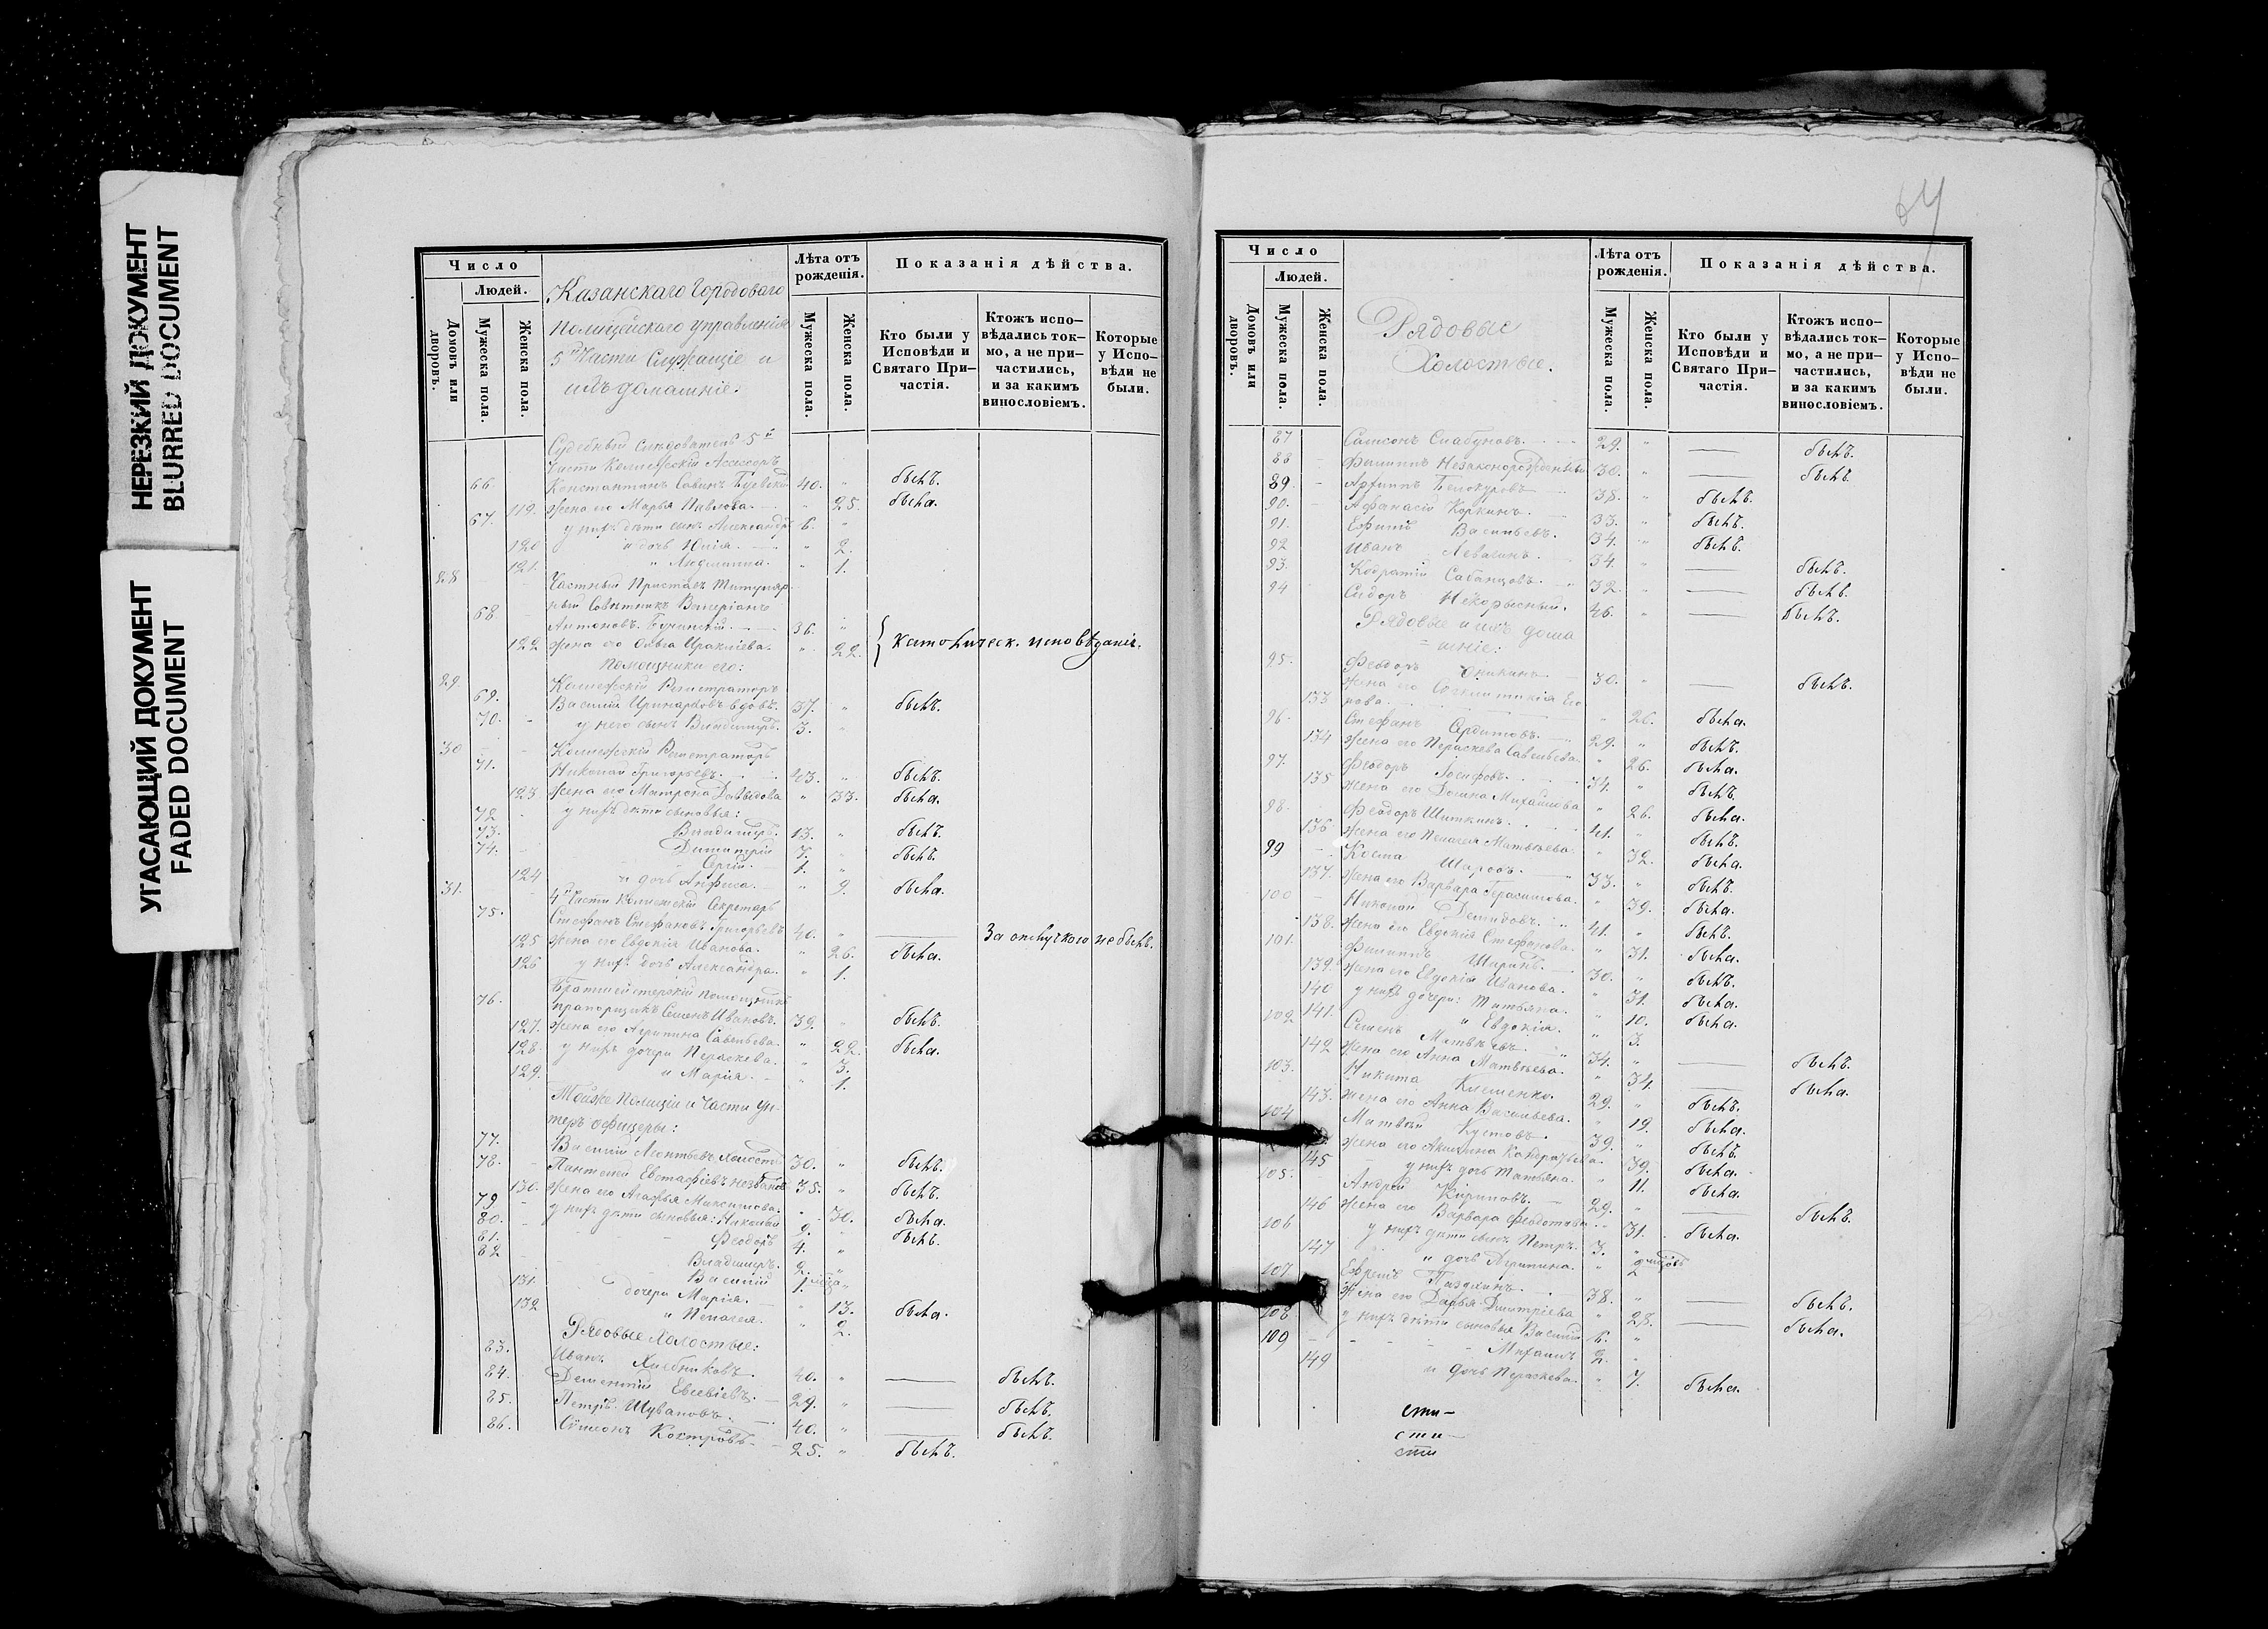 НЕРЕЗКИЙ ДОКУМЕНТ
BLURRED DOCUMENT
УГАСАЮЩИЙ ДОКУМЕНТ
FADED DOCUMENT
Число
Людей.
Домовъ или дворовъ.
Мужеска пола.
Женска пола.
Казанскаго Городоваго
Полицейскаго управленія
5й Части Служащіе и
ихъ домашніе.
Лѣта отъ рожденія.
Мужеска пола.
Женска пола.
Показанія дѣйства.
Кто были у Исповѣди и Святаго При-частія.
Ктожъ испо-вѣдались ток-мо, а не при-частились, и за какимъ винословіемъ.
Которые у Испо-вѣди не были.
Судебный Слѣдователь 5й
Части Коллежскій Ассесоръ
66. Константинъ Савинъ 40. " былъ.
119. Жена его Марья Павлова. " 25. была.
67. у нихъ дѣти сынъ Александръ 6. "
120 и дочь Юлія. " 2.
121. " Людмилла. " 1.
28 Частный Приставъ Титуляр-
ный Совѣтникъ Валеріанъ
68 Антоновъ 36. "
122 жена его Ольга Ираклиева. " 22. Католическ. исповѣданія.
Помощники его:
29. Коллежскій Регистраторъ
69. Василій Иринарховъ вдовъ. 37. " былъ.
70. у него сынъ Владимиръ. 3. "
30 Коллежскій Регистраторъ
71. Николай Григорьевъ. 43. " былъ.
123. Жена его Матрона Давыдова " 33. была.
72 у нихъ дѣти сыновья:
73. Владимиръ. 13. " былъ.
74. Димитрій 7. " былъ.
Сергій. 1. "
124 и дочь Анфиса. " 9. была.
31. 4й Части Коллежскій Секретарь
75. Стефанъ Стефановъ Григорьевъ 40. " За отлучкою не былъ.
125 Жена его Евдокія Иванова. " 26. была.
126 у нихъ дочь Александра. " 1.
Брантмейстерскій помощникъ
76. прапорщикъ Семенъ Ивановъ. 39. " былъ.
127. Жена его Агрипина Савельева. " 22. была.
128. у нихъ дочери Параскева. " 3.
129. и Марія. " 1.
Тойже Полиціи и Части Ун-
теръ офицеры:
77. Василій Леонтьевъ холостъ 30. " былъ.
78. Пантелей Евстафіевъ 35. " былъ.
130. Жена его Агафья Максимова. " 30. была.
79 у нихъ дѣти сыновья: Николай 9. " былъ.
80. Феодоръ 4. "
81. Владимиръ. 2. "
82 Василій 1.
131. дочери Марія. " 13. была.
132 и Пелагея. " 2.
Рядовые Холостые:
83. Иванъ Хлебниковъ 40. " былъ.
84. Дементій Евсевіевъ. 29. " былъ.
85. Петръ Шувановъ. 40. " былъ.
86. Симеонъ Костровъ. 25. " былъ.
64
Число
Людей.
Домовъ или дворовъ.
Мужеска пола.
Женска пола.
Рядовые
Холостые.
Лѣта отъ рожденія.
Мужеска пола.
Женска пола.
Показанія дѣйства.
Кто были у Исповѣди и Святаго При-частія.
Ктожъ испо-вѣдались ток-мо, а не при-частились, и за какимъ винословіемъ.
Которые у Испо-вѣди не были.
87 Самсонъ Слабуновъ. 29. " былъ.
88 Филиппъ Незаконорожденный 30. " былъ.
89. Архипъ Белокуровъ 38. " былъ.
90. Афанасій Коркинъ. 33. " былъ.
91. Ефимъ Васильевъ. 34. " былъ.
92 Иванъ Левагинъ. 34. " былъ.
93. Кодратій Сабанцовъ. 32. " былъ.
94 Сидоръ Некорысный. 46. " былъ.
Рядовые и ихъ дома
=шніе:
95. Феодоръ 30. " былъ.
133 Жена его Его
рова. " 26. была.
96. Стефанъ Ардитовъ. 29. " былъ.
134 Жена его Параскева Савельева. " 26. была.
97. Феодоръ Іосифовъ. 34. " былъ.
135 Жена его Домна Михайлова " 26. была.
98. Феодоръ Шиткинъ. 41. " былъ.
136 Жена его Пелагея Матвѣева. " 32. была.
99 Косма Шаровъ. 33. " былъ.
137. Жена его Варвара Герасимова. " 39. была.
100 Николай Демидовъ. 41. " былъ.
138. Жена его Евдокія Стефанова. " 31. была.
101. Филиппъ Ширинъ. 30. " былъ.
139. Жена его Евдокія Иванова. " 31. была.
140 у нихъ дочери: Татьяна. " 10. была.
141. и Евдокія. " 3.
102 Семенъ Матвѣевъ. 34. " былъ.
142 Жена его Анна Матвѣева. " 34. была.
103. Никита Клеменко. 29. " былъ.
143. Жена его Анна Васильева. " 19. была.
104 Матвѣй Кустовъ. 39. " былъ.
Жена его Акилина Кондратьева. " 39. была.
145 у нихъ дочь Татьяна. " 11. была.
105. Андрей Кириловъ. 29. " былъ.
146 Жена его Варвара Феодотова. " 31. была.
106 у нихъ дѣти сынъ Петръ. 3. "
147 и дочь Агрипина. " 2
107 Ефремъ Паздкинъ. 38. " былъ.
Жена его Дарья Дмитріева " 28. была.
108 у нихъ дѣти сыновья Василій 6. "
109 Михаилъ 2. "
149 и дочь Параскева. " 7. была.
сти-
сти-
сти